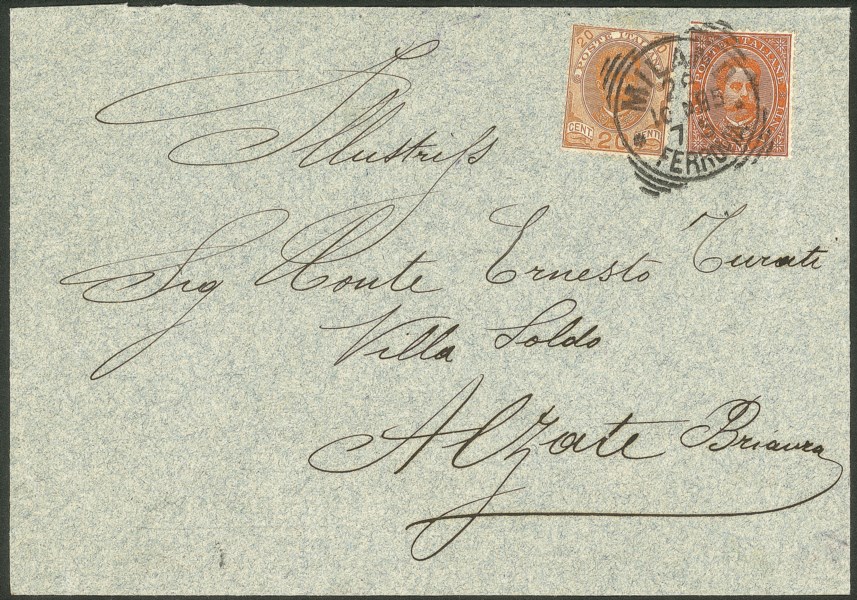 20 POSTE ITALIANE
CENT 20 CENTI
POSTE ITALIANE
MILANO
FERROVIA
Illustriss
Sig Conte Ernesto Turati
Villa Soldo
Alzate Brianza